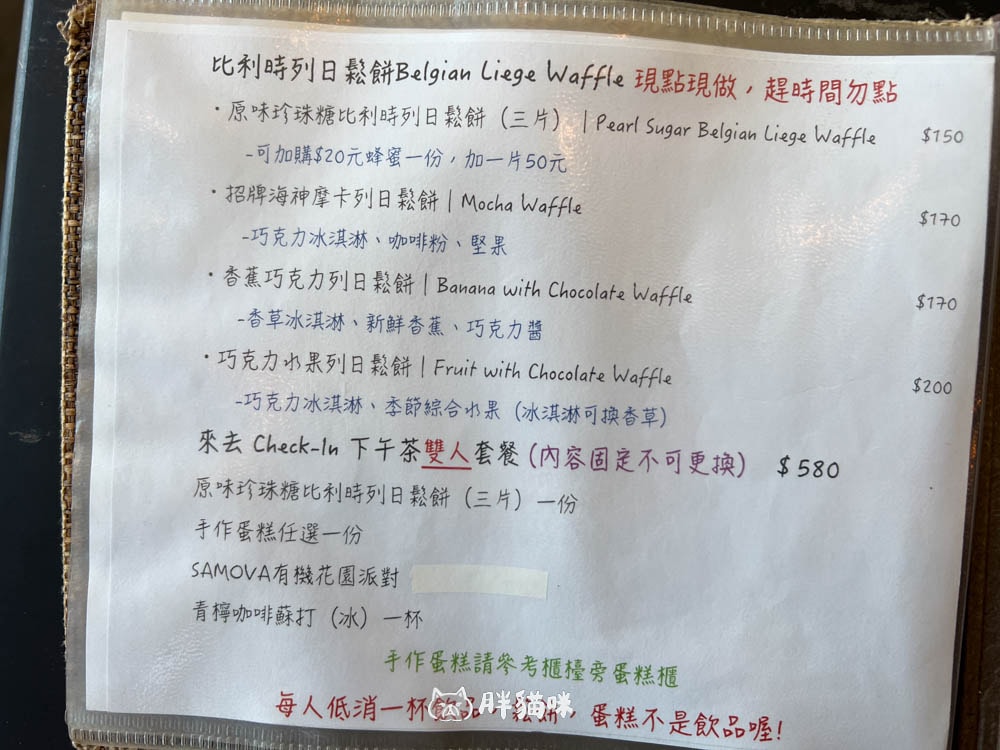 比利時列日鬆餅Belgian Liege Waffle 現點現做，趕時間勿點
·原味珍珠糖比利時列日鬆餅（三片）｜Pearl Sugar Belgian Liege Waffle $150
-可加購$20元蜂蜜一份，加一片50元
·招牌海神摩卡列日鬆餅｜Mocha Waffle $170
-巧克力冰淇淋、咖啡粉、堅果
·香蕉巧克力列日鬆餅｜Banana with Chocolate Waffle $170
-香草冰淇淋、新鮮香蕉、巧克力醬
·巧克力水果列日鬆餅｜Fruit with Chocolate Waffle $200
-巧克力冰淇淋、季節綜合水果（冰淇淋可換香草）
來去 Check-In 下午茶雙人套餐（內容固定不可更換） $580
原味珍珠糖比利時列日鬆餅（三片）一份
手作蛋糕任選一份
SAMOVA有機花園派對
青檸咖啡蘇打（冰）一杯
手作蛋糕請參考櫃檯旁蛋糕櫃
每人低消一杯飲品，鬆餅，蛋糕不是飲品喔!
胖貓咪